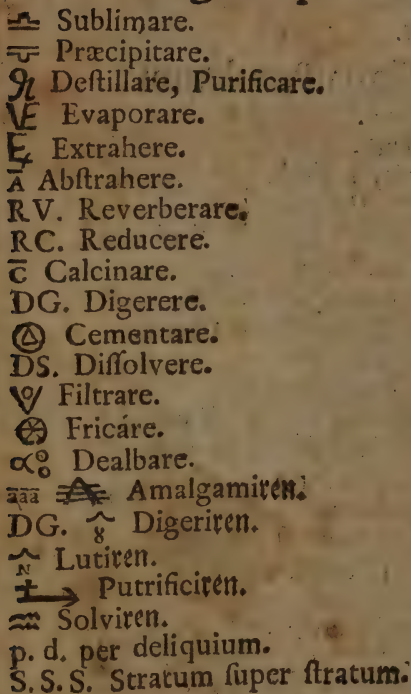 ♎ Sublimare.
Præcipitare.
Deſtillare, Purificare.
Evaporare.
Extrahere.
Ā Abſtrahere.
RV. Reverberare.
RC. Reducere.
c̄ Calcinare.
DG. Digerere.
Cementare.
DS. Diſſolvere.
Filtrare.
Fricáre.
Dealbare.
āāā Amalgamiren.
DG. Digeriren.
Lutiren.
Putrificiren.
♒ Solviren.
p. d. per deliquium.
S. S. S. Stratum ſuper ſtratum.